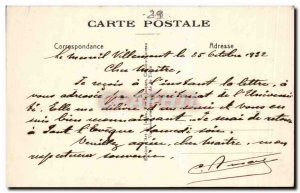 29
CARTE POSTALE
Correspondance
Adresse
Le mesnil Villement le 25 Octobre 1932
Cher Maître,
Je reçois à l'instant la lettre, à
vous adressée par le Secrétariat de l'Universi
té. Elle me et vous en suis
bien reconnaissant. Je serai de retour
à Pont l'Evêque samedi soir.
Veuillez agréer, cher maître, mon
respectueux souvenir.